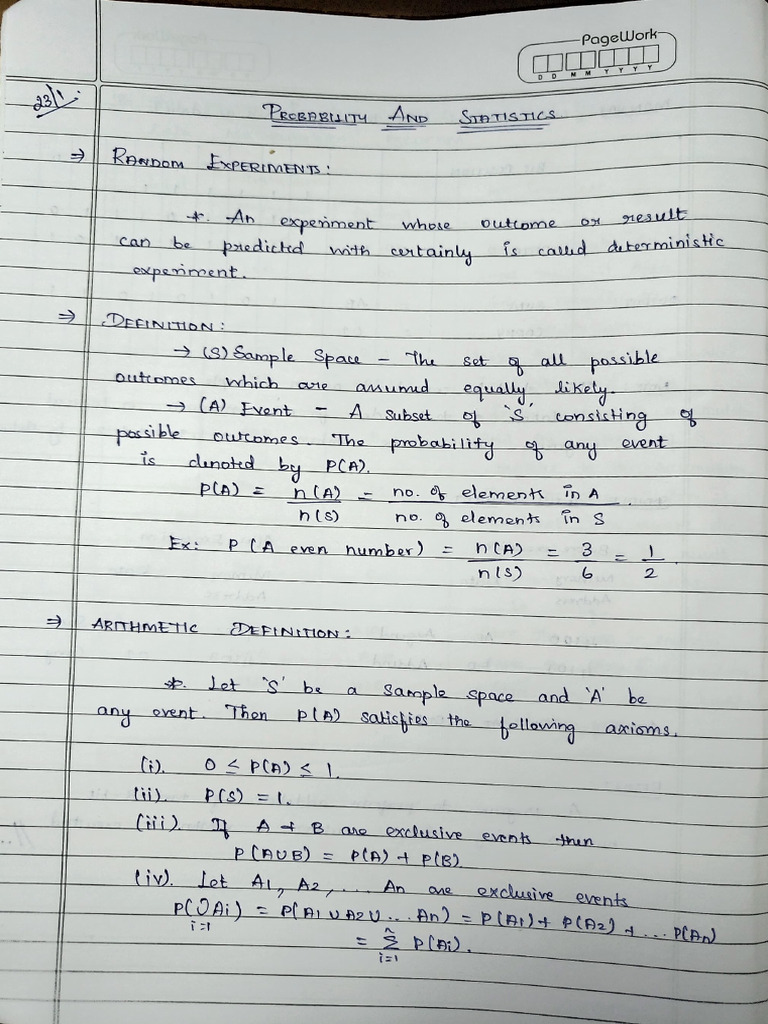 PageWork
D D M M Y Y Y Y
23/1
PROBABILITY AND STATISTICS
⇒ RANDOM EXPERIMENTS:
*. An experiment whose outcome or result
can be predicted with certainly is called deterministic
experiment.
⇒ DEFINITION:
→ (S) Sample Space – The set of all possible
outcomes which are assumed equally likely.
→ (A) Event – A subset of 'S' consisting of
possible outcomes. The probability of any event
is denoted by P(A).
P(A) = n(A)/n(S) = no. of elements in A / no. of elements in S
Ex: P (A even number) = n(A)/n(S) = 3/6 = 1/2.
⇒ ARITHMETIC DEFINITION:
*. Let 'S' be a sample space and 'A' be
any event. Then P(A) satisfies the following axioms.
(i). 0 ≤ P(A) ≤ 1.
(ii). P(S) = 1.
(iii). If A & B are exclusive events then
P(A∪B) = P(A) + P(B).
(iv). Let A1, A2, ... An are exclusive events
P(∪ i=1 Ai) = P(A1 ∪ A2 ∪ ... An) = P(A1) + P(A2) + ... P(An)
= n Σ i=1 P(Ai).